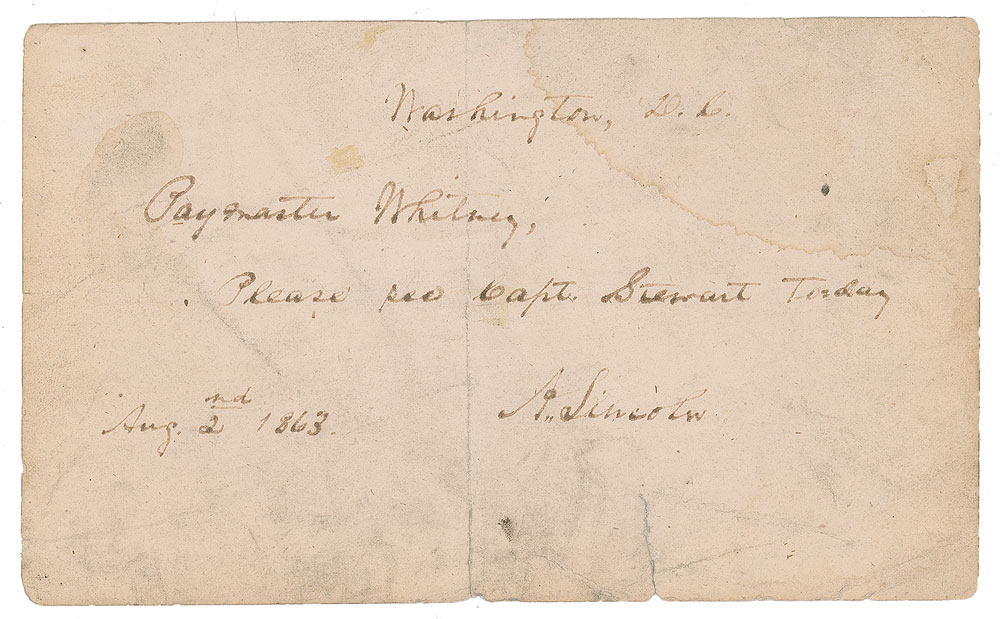 Washington, D.C.
Paymaster Whitney,
Please see Capt. Stewart Today
A. Lincoln
Aug. 2nd 1863.